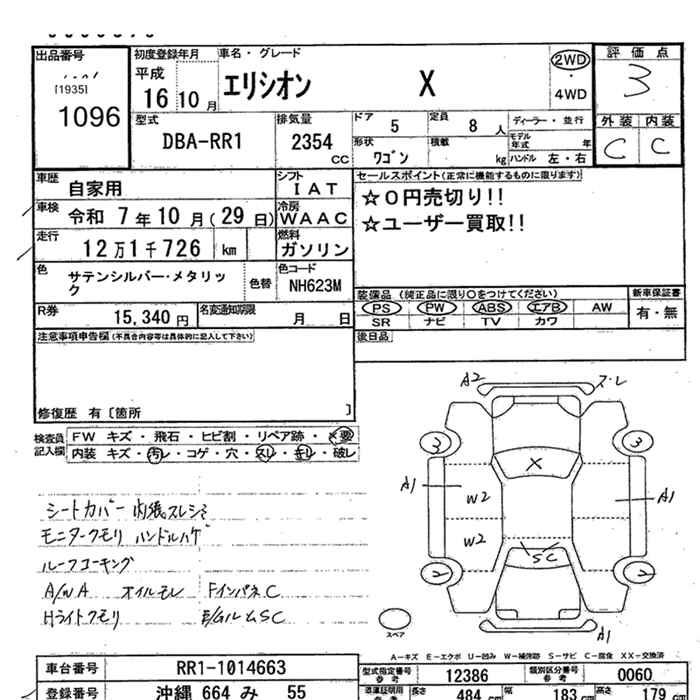 出品番号
[1935]
1096
初度登録年月
平成
16 10 月
車名・グレード
エリシオン X
2WD
・
4WD
評価点
3
外装 内装
C C
型式
DBA-RR1
排気量
2354
cc
ドア
5
定員
8 人
形状
ワゴン
積載
kg
ディーラー・並行
モデル年式 年
ハンドル 左・右
車歴
自家用
シフト
IAT
車検
令和 7年10月(29日)
冷房
WAAC
走行
12万1千726 km
燃料
ガソリン
色
サテンシルバー・メタリック
色替
色コード
NH623M
R券
15,340 円
名変通知期限
月 日
セールスポイント(正常に機能するものに限ります)
☆0円売切り!!
☆ユーザー買取!!
装備品 (純正品に限り○をつけてください)
PS PW ABS エアB AW
SR ナビ TV カワ
新車保証書
有・無
後日品
注意事項申告欄(不具合内容等は具体的に記入して下さい)
修復歴 有〔箇所 〕
検査員記入欄
FW キズ・飛石・ヒビ割・リペア跡・×要
内装 キズ・汚レ・コゲ・穴・スレ・キレ・破レ
シートカバー 内張スレシミ
モニタークモリ ハンドルハゲ
ルーフコーキング
A/W A オイルモレ FインパネC
Hライトクモリ E/GルームSC
A2
ス・レ
3
3
X
A1
W2
A1
W2
SC
2
2
A1
スペア
A-キズ E-エクボ U-凹み W-補修跡 S-サビ C-腐食 XX-交換済
車台番号
RR1-1014663
登録番号
沖縄 664 み 55
型式指定番号
参考
12386
類別区分番号
参考
0060
長さ 484 cm
幅 183 cm
高さ 179 cm